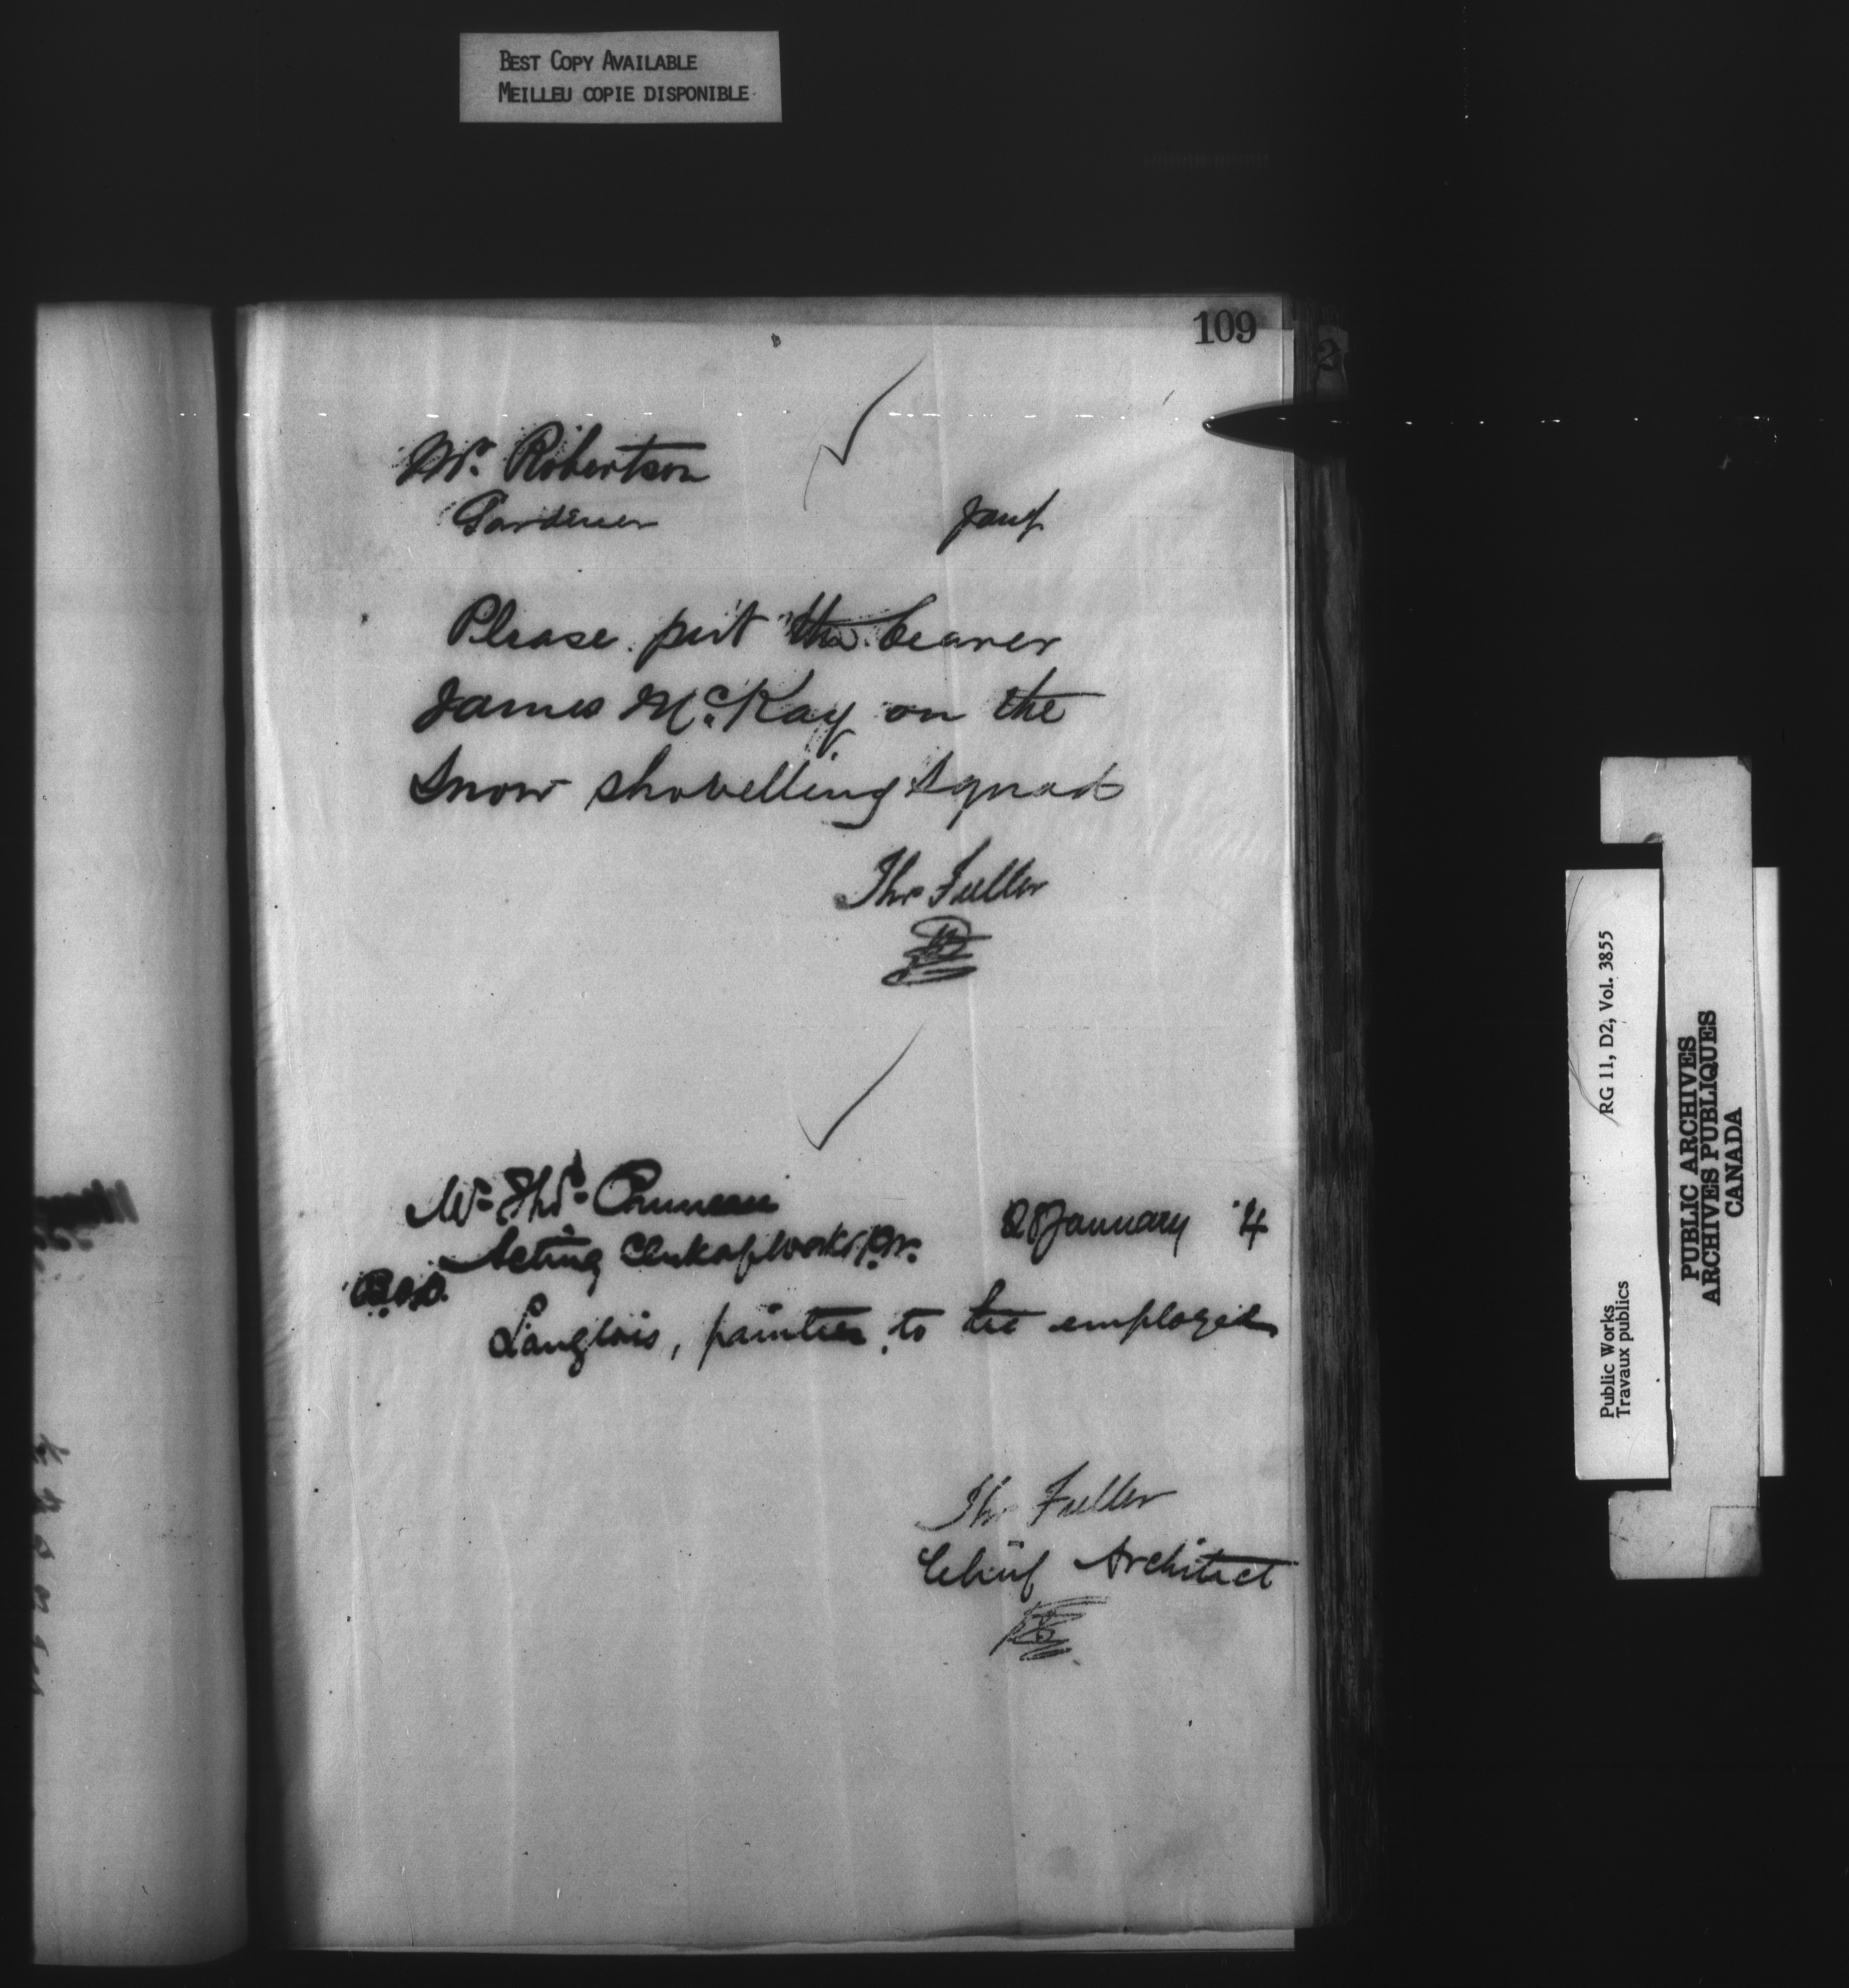 BEST COPY AVAILABLE
MEILLEU COPIE DISPONIBLE
109
2
Mr. Robertson
Gardener
Please put the bearer
James McKay on the
Snow shovelling squad
Thos Fuller
Mr. Thos.
Acting Clerk of Works P.W.
28 January '4
Langlois, painter, to be employed
Thos Fuller
Chief Architect
RG 11, D2, Vol. 3855
Public Works
Travaux publics
PUBLIC ARCHIVES
ARCHIVES PUBLIQUES
CANADA